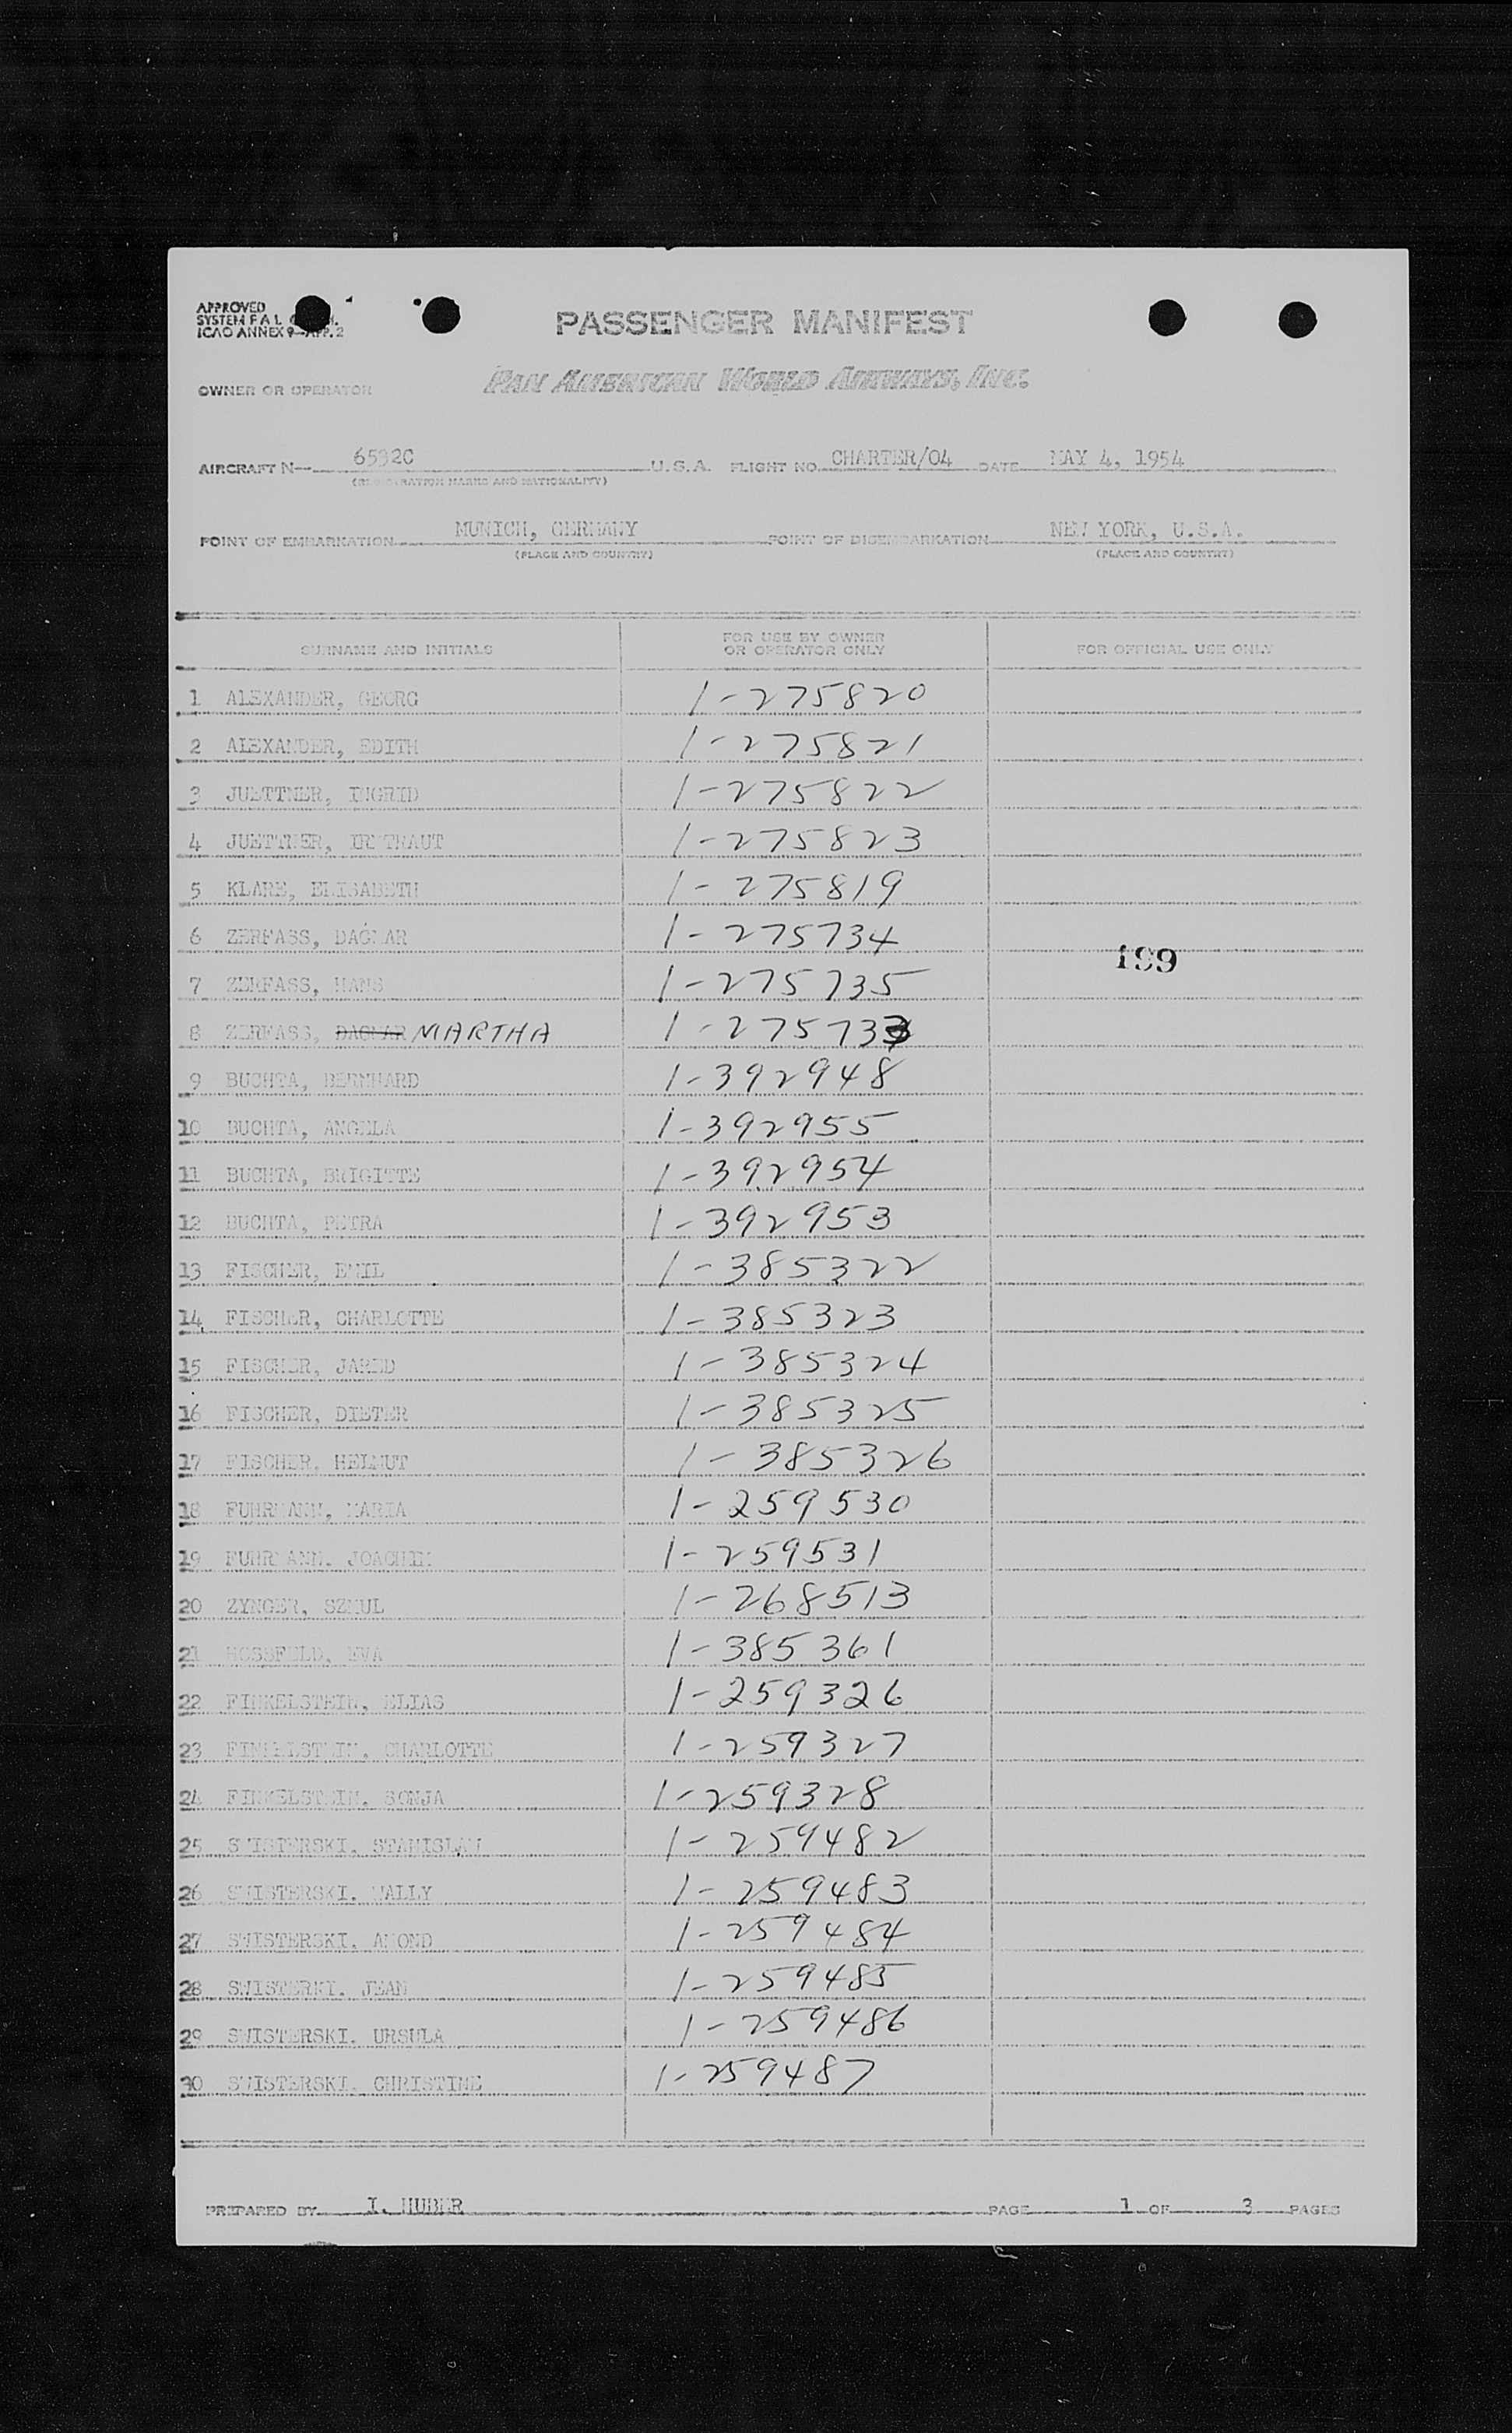 APPROVED
SYSTEM F A L
ICAO ANNEX 9—APP. 2
PASSENGER MANIFEST
OWNER OR OPERATOR PAN AMERICAN WORLD AIRWAYS, INC.
AIRCRAFT N— 6532C U.S.A. FLIGHT NO. CHARTER/04 DATE MAY 4, 1954
(REGISTRATION MARKS AND NATIONALITY)
POINT OF EMBARKATION MUNICH, GERMANY POINT OF DISEMBARKATION NEW YORK, U.S.A.
(PLACE AND COUNTRY) (PLACE AND COUNTRY)
SURNAME AND INITIALS FOR USE BY OWNER OR OPERATOR ONLY FOR OFFICIAL USE ONLY
1 ALEXANDER, GEORG 1-275820
2 ALEXANDER, EDITH 1-275821
3 JUETTNER, INGRID 1-275822
4 JUETTNER, IRMTRAUT 1-275823
5 KLARE, ELISABETH 1-275819
6 ZERFASS, DAGMAR 1-275734
199
7 ZERFASS, HANS 1-275735
8 ZERFASS, DAGMAR MARTHA 1-275733
9 BUCHTA, BERNHARD 1-392948
10 BUCHTA, ANGELA 1-392955
11 BUCHTA, BRIGITTE 1-392954
12 BUCHTA, PETRA 1-392953
13 FISCHER, EMIL 1-385322
14 FISCHER, CHARLOTTE 1-385323
15 FISCHER, JARED 1-385324
16 FISCHER, DIETER 1-385325
17 FISCHER. HELMUT 1-385326
18 FUHRMANN, MARIA 1-259530
19 FUHRMANN. JOACHIM 1-259531
20 ZYNGER, SZMUL 1-268513
21 HOSSFELD, EVA 1-385361
22 FINKELSTEIN, ELIAS 1-259326
23 FINKELSTEIN. CHARLOTTE 1-259327
24 FINKELSTEIN. SONJA 1-259328
25 SWISTERSKI. STANISLAW 1-259482
26 SWISTERSKI. WALLY 1-259483
27 SWISTERSKI. AMOND 1-259484
28 SWISTERKI. JEAN 1-259485
29 SWISTERSKI. URSULA 1-259486
30 SWISTERSKI. CHRISTINE 1-259487
PREPARED BY I. HUBER PAGE 1 OF 3 PAGES